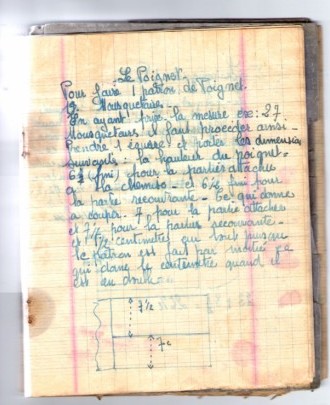 Le Poignet.
Pour faire 1 patron de Poignet.
Mousquetaire.
En ayant prise la mesure ex: 27
Mousquetaire il faut procéder ainsi -
Prendre 1 équerre et porter les dimensions
suivants : la hauteur du poignet =
6½ (fini) pour la parties attachée
à la chemise - et 6¾ fini pour
la partie recouvrante - Ce qui donne
a couper. 7 pour la partie attachée
et 7½ pour la parties recouvrante -
et centimètre
le patron est fait par moitié ce
qui donc le centimètre quand il
est en double =
7½
7c